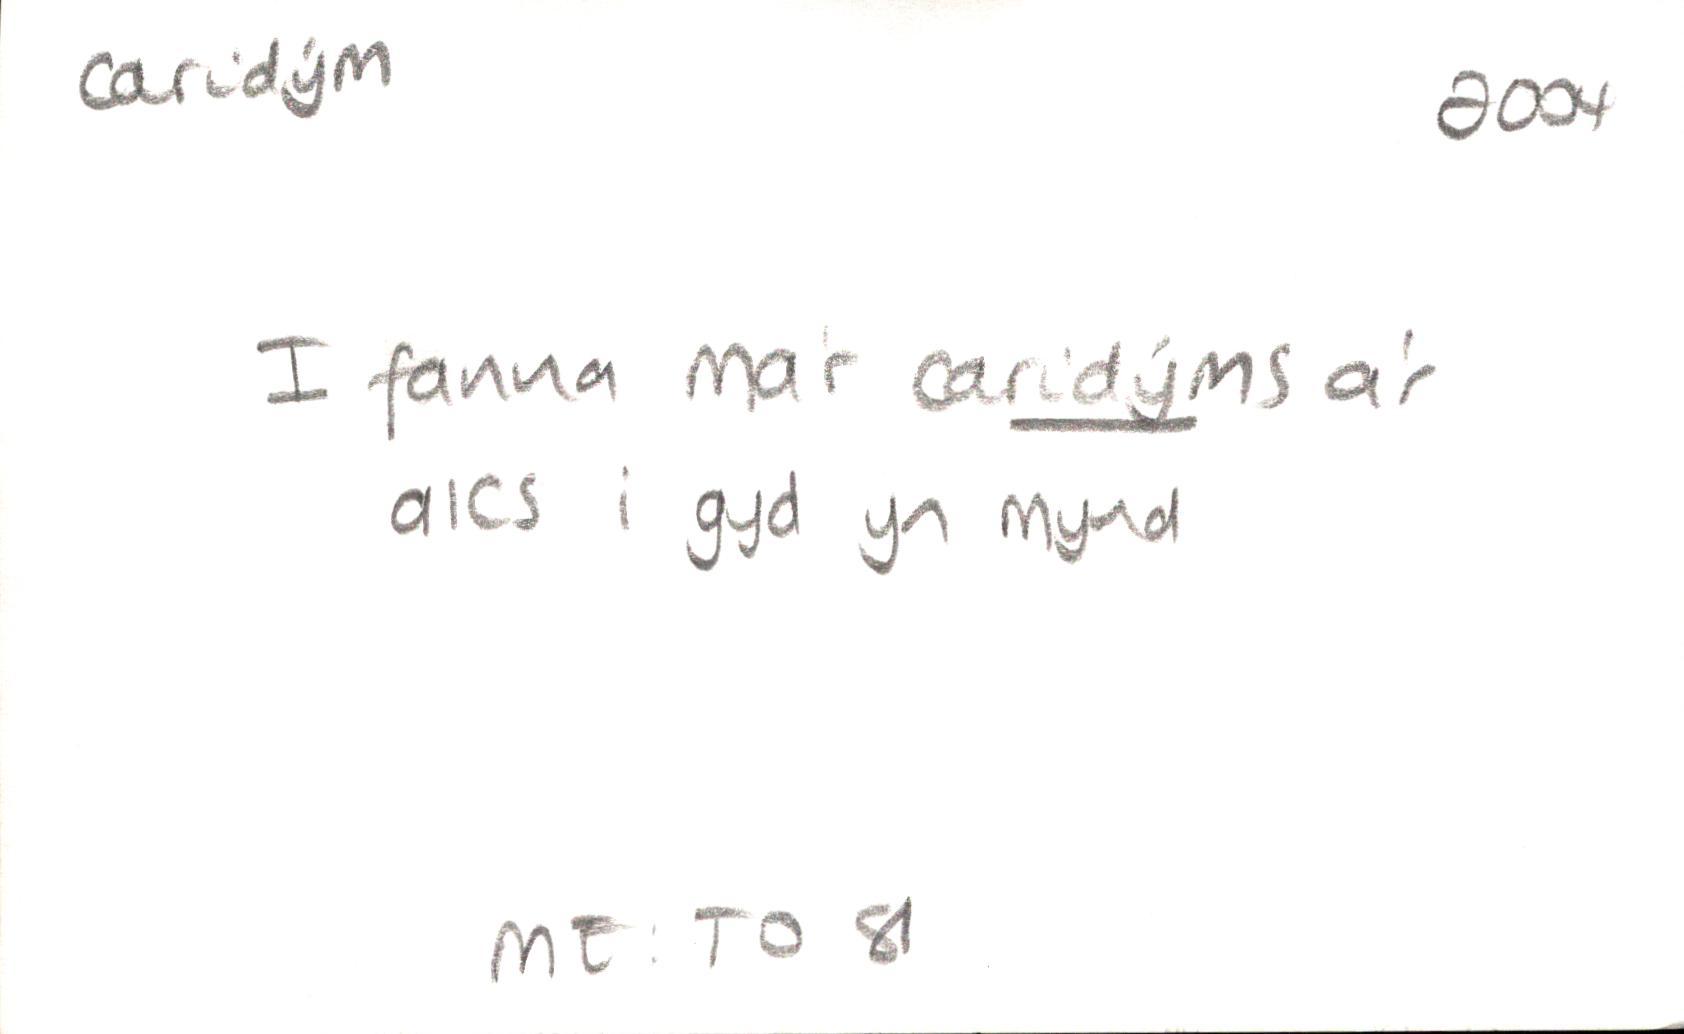 caridým 2004
I fanna ma'r caridýms a'r
alcs i gyd yn mynd
ME: TO 81